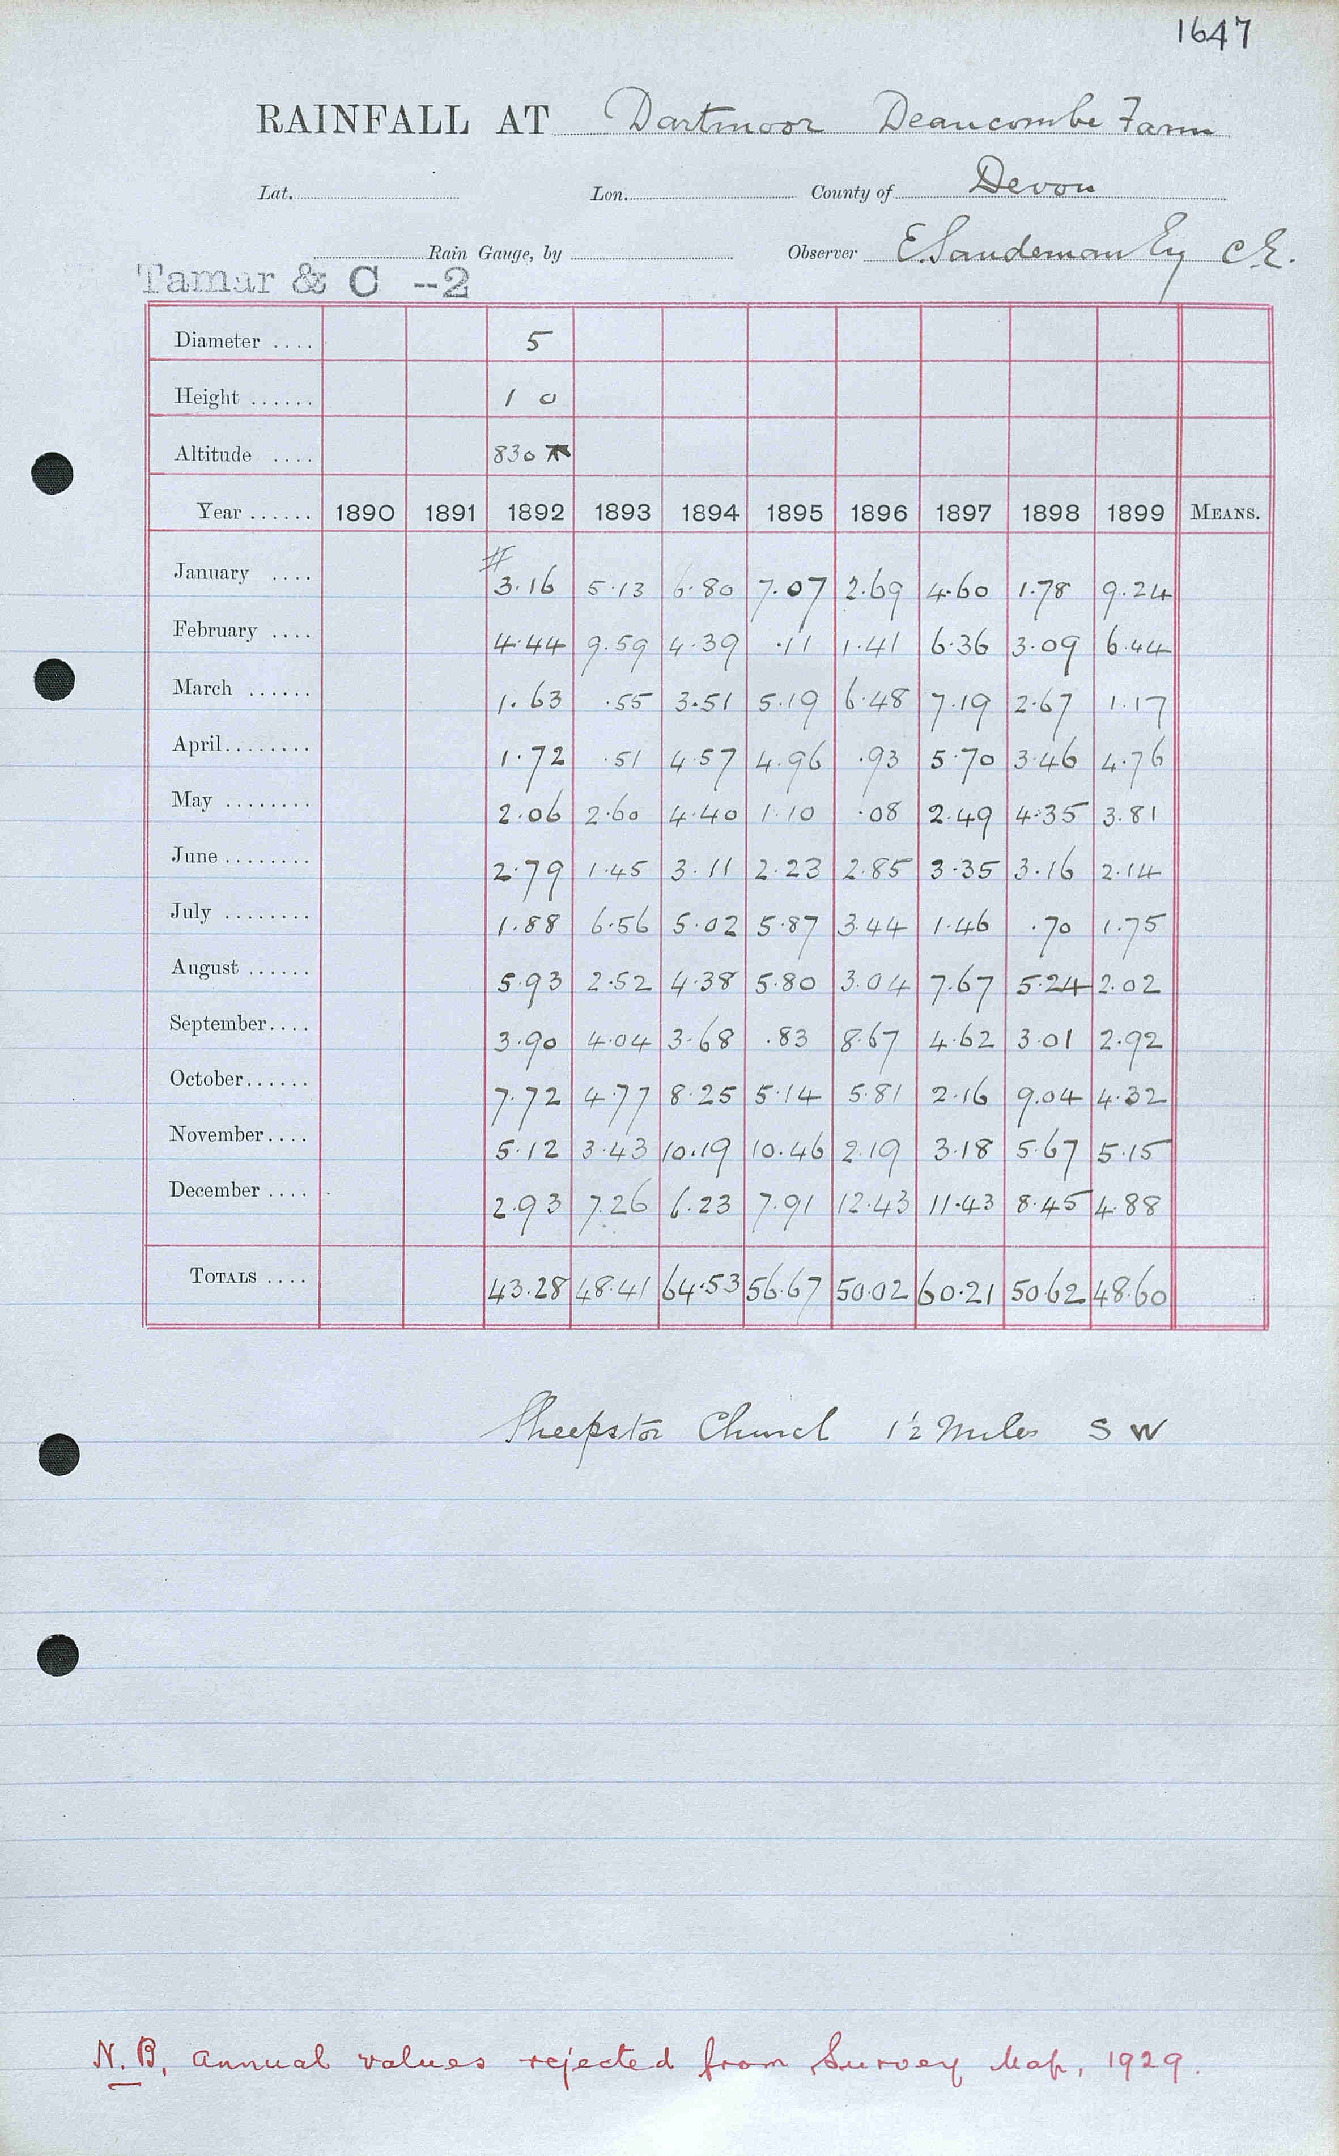 1647
RAINFALL AT Dartmoor Deancombe Farm
Lat. Lon. County of Devon
Rain Gauge, by Observer E. Sandeman Esq C.E.
Tamar & C --2
Diameter .... 5
Height ...... 1 0
Altitude .... 830
Year ...... 1890 1891 1892 1893 1894 1895 1896 1897 1898 1899 MEANS.
January .... # 3.16 5.13 6.80 7.07 2.69 4.60 1.78 9.24
February .... 4.44 9.59 4.39 .11 1.41 6.36 3.09 6.44
March ...... 1.63 .55 3.51 5.19 6.48 7.19 2.67 1.17
April........ 1.72 .51 4.57 4.96 .93 5.70 3.46 4.76
May ........ 2.06 2.60 4.40 1.10 .08 2.49 4.35 3.81
June ........ 2.79 1.45 3.11 2.23 2.85 3.35 3.16 2.14
July ........ 1.88 6.56 5.02 5.87 3.44 1.46 .70 1.75
August ...... 5.93 2.52 4.38 5.80 3.04 7.67 5.24 2.02
September.... 3.90 4.04 3.68 .83 8.67 4.62 3.01 2.92
October...... 7.72 4.77 8.25 5.14 5.81 2.16 9.04 4.32
November.... 5.12 3.43 10.19 10.46 2.19 3.18 5.67 5.15
December .... 2.93 7.26 6.23 7.91 12.43 11.43 8.45 4.88
TOTALS .... 43.28 48.41 64.53 56.67 50.02 60.21 50.62 48.60
Sheepstor Church 1½ miles S W
N.B. Annual values rejected from Survey Map, 1929.